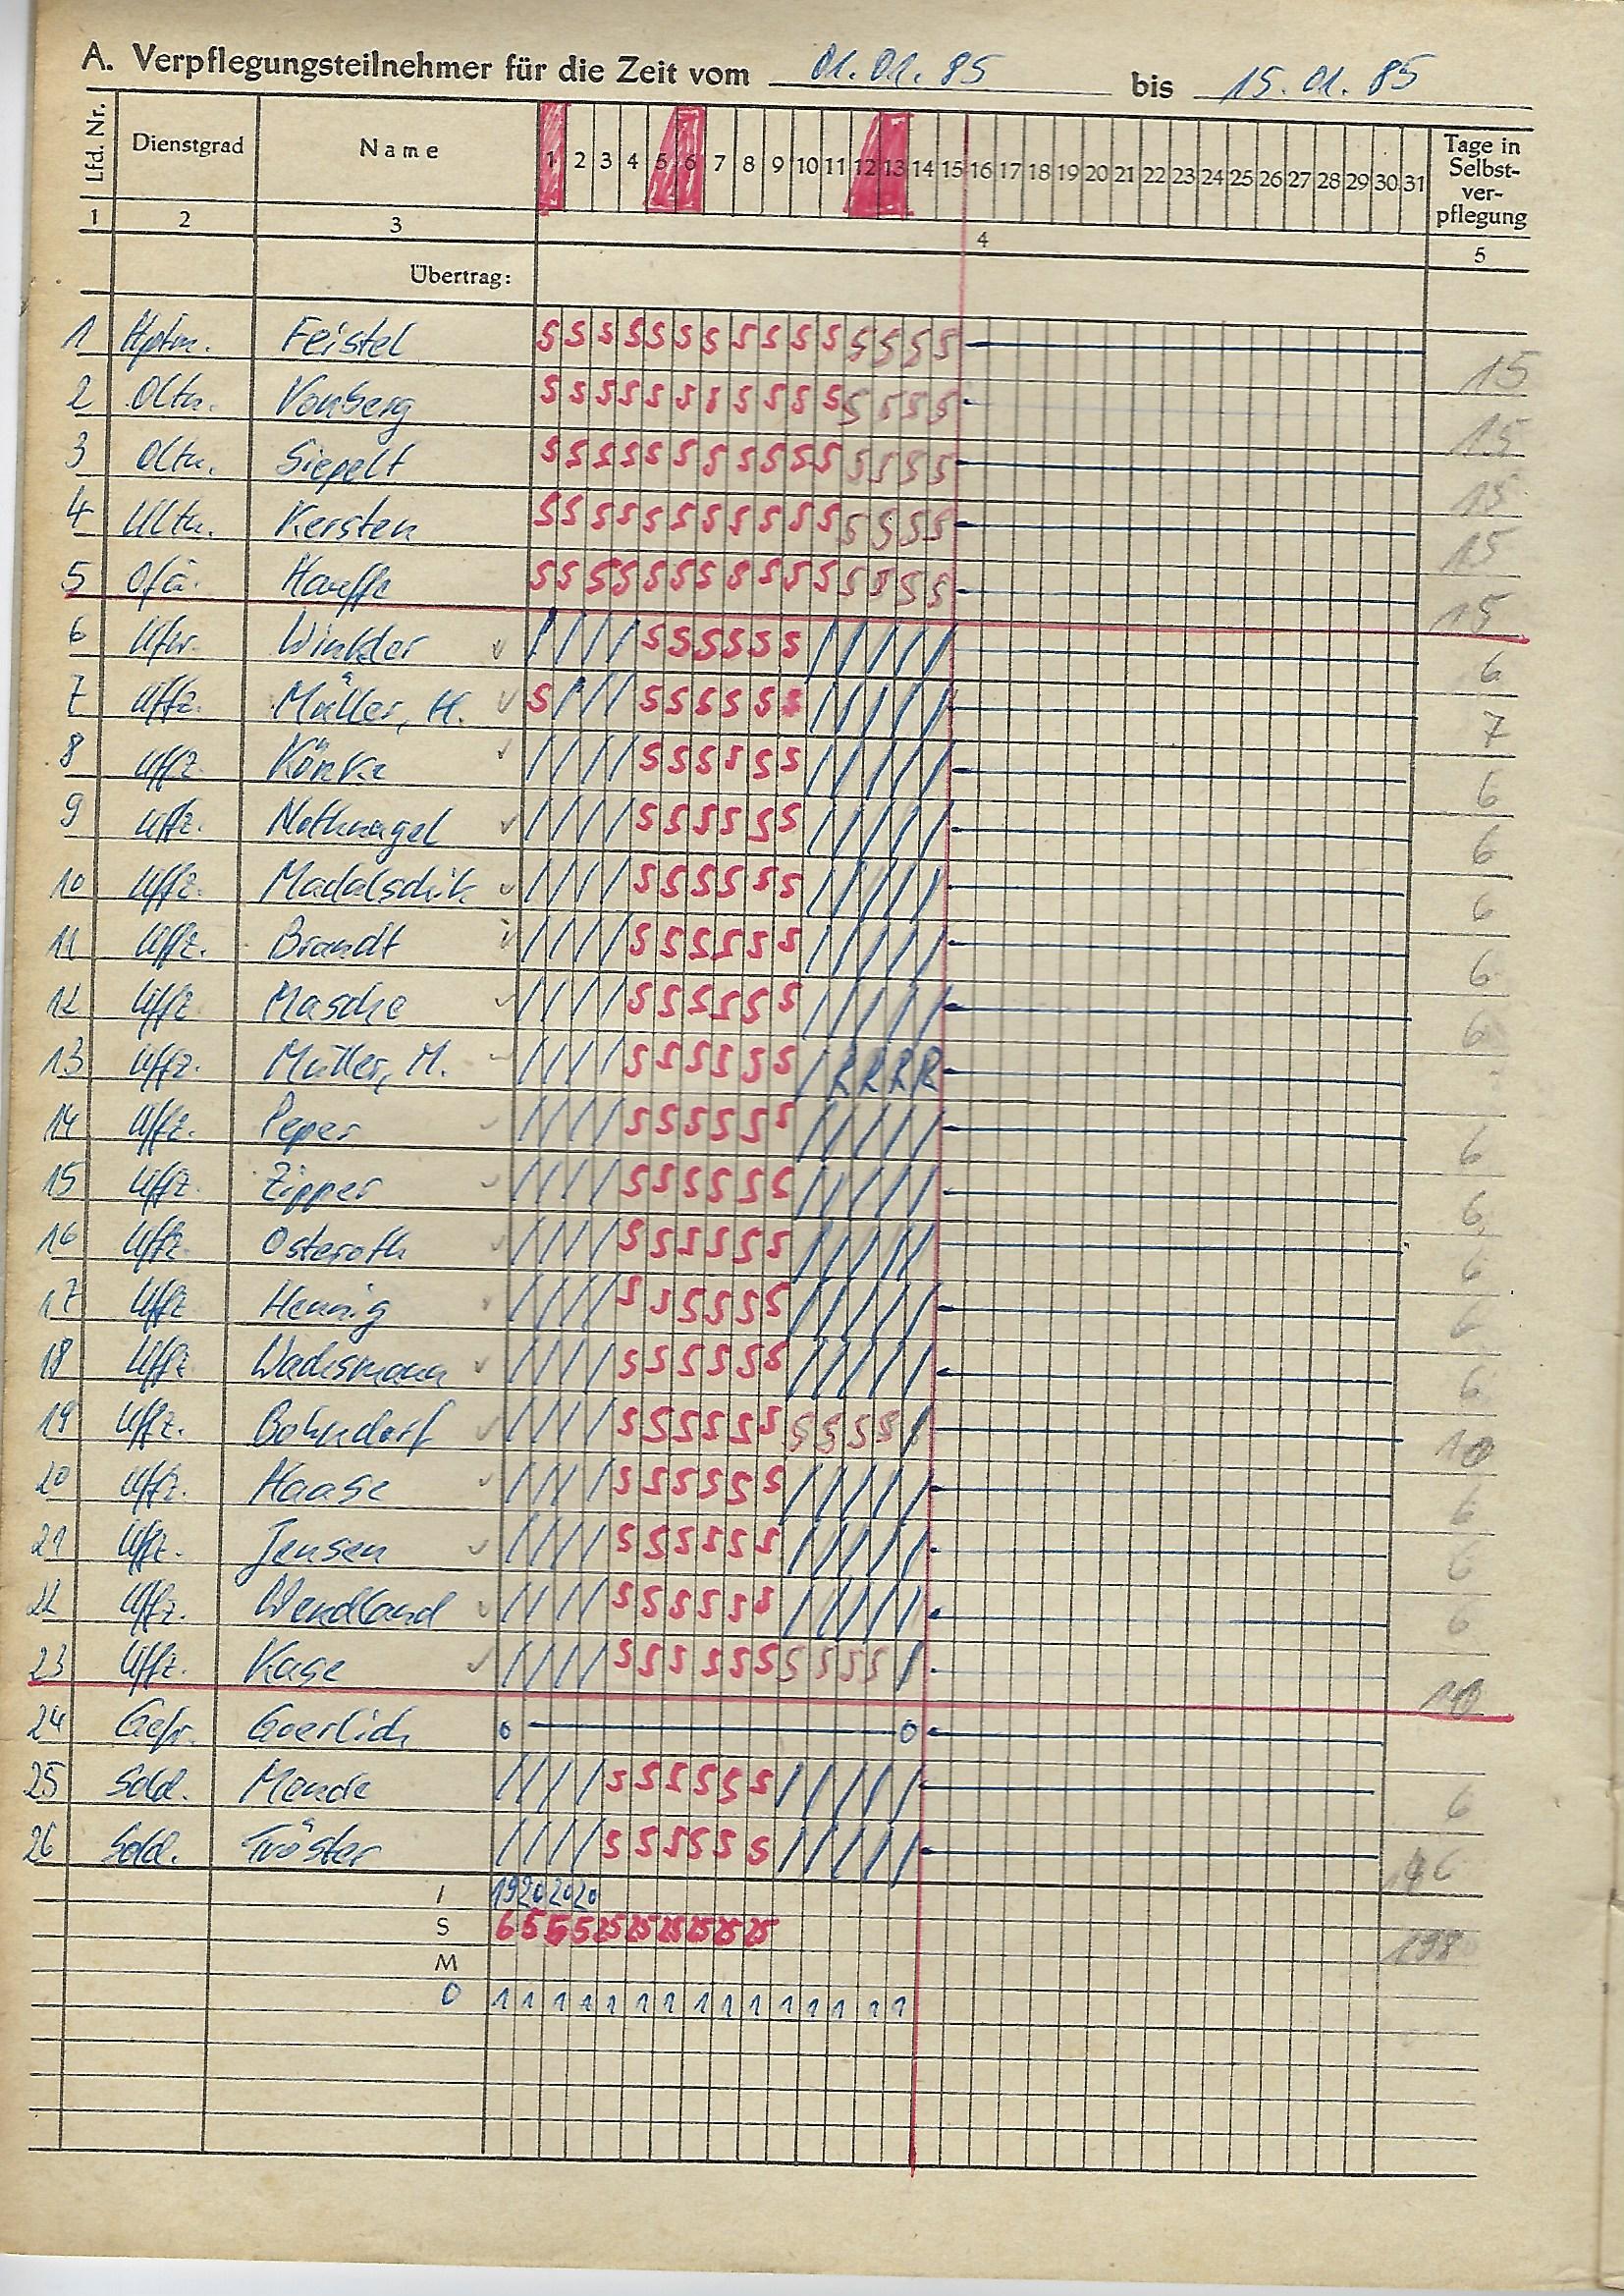 A. Verpflegungsteilnehmer für die Zeit vom 01.01.85 bis 15.01.85
Lfd. Nr. Dienstgrad Name 1 2 3 4 5 6 7 8 9 10 11 12 13 14 15 16 17 18 19 20 21 22 23 24 25 26 27 28 29 30 31 Tage in Selbst-
ver-
pflegung
1 2 3 4 5
Übertrag:
1 Hptm. Feistel S S S S S S S S S S S S S S S 15
2 Oltn. Vonberg S S S S S S S S S S S S S S S 15
3 Oltn. Siepelt S S S S S S S S S S S S S S S 15
4 Ultn. Kersten S S S S S S S S S S S S S S S 15
5 Ofä. Hauffe S S S S S S S S S S S S S S S 15
6 Ufw. Winkler / / / / S S S S S S / / / / / 6
7 Uffz. Müller, H. S / / / S S S S S S / / / / / 7
8 Uffz. / / / / S S S S S S / / / / / 6
9 Uffz. Nothnagel / / / / S S S S S S / / / / / 6
10 Uffz. Madalschik / / / / S S S S S S / / / / / 6
11 Uffz. Brandt / / / / S S S S S S / / / / / 6
12 Uffz. Masche / / / / S S S S S S / / / / / 6
13 Uffz. Müller, M. / / / / S S S S S S / R R R R
14 Uffz. Peper / / / / S S S S S S / / / / / 6
15 Uffz. Zipper / / / / S S S S S S / / / / / 6
16 Uffz. Osteroth / / / / S S S S S S / / / / / 6
17 Uffz. Hennig / / / / S S S S S S / / / / / 6
18 Uffz. Wachsmann / / / / S S S S S S / / / / / 6
19 Uffz. Bohndorf / / / / S S S S S S S S S S / 10
20 Uffz. Haase / / / / S S S S S S / / / / / 6
21 Uffz. Jensen / / / / S S S S S S / / / / / 6
22 Uffz. Wendland / / / / S S S S S S / / / / / 6
23 Uffz. Kase / / / / S S S S S S S S S S / 10
24 Gefr. Goerlich 0 0
25 Sold. Mende / / / / S S S S S S / / / / / 6
26 Sold. Tröster / / / / S S S S S S / / / / / 6
/ 19 20 20 20
S 6 5 5 5 25 25 25 25 25 25 198
M
O 1 1 1 1 1 1 1 1 1 1 1 1 1 1 1